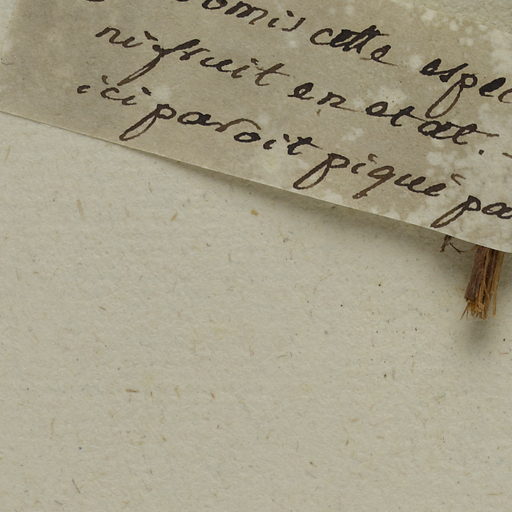 omis cette espec
ni fruit en etat. -
ici paroit piqué pa